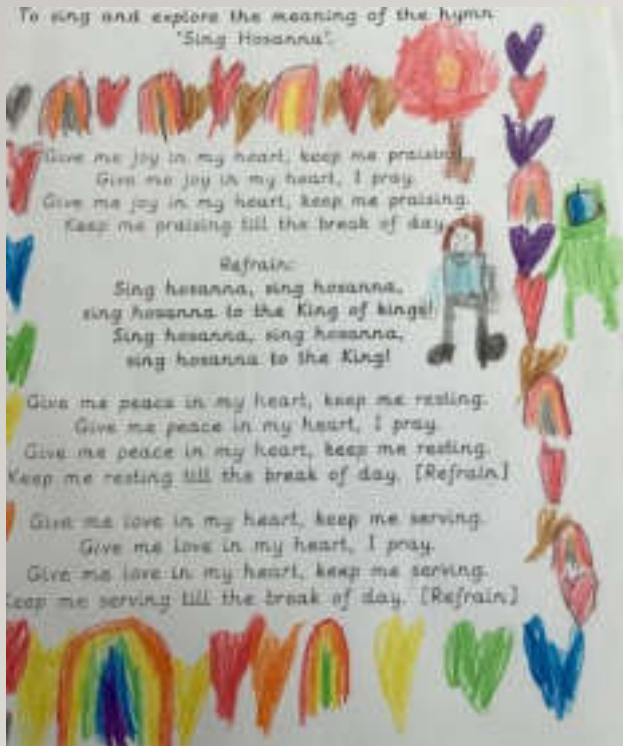 To sing and explore the meaning of the hymn
"Sing Hosanna".
Give me joy in my heart, keep me praising.
Give me joy in my heart, I pray.
Give me joy in my heart, keep me praising.
Keep me praising till the break of day.
Refrain:
Sing hosanna, sing hosanna,
sing hosanna to the King of kings!
Sing hosanna, sing hosanna,
sing hosanna to the King!
Give me peace in my heart, keep me resting.
Give me peace in my heart, I pray.
Give me peace in my heart, keep me resting.
Keep me resting till the break of day. [Refrain]
Give me love in my heart, keep me serving.
Give me love in my heart, I pray.
Give me love in my heart, keep me serving.
Keep me serving till the break of day. [Refrain]